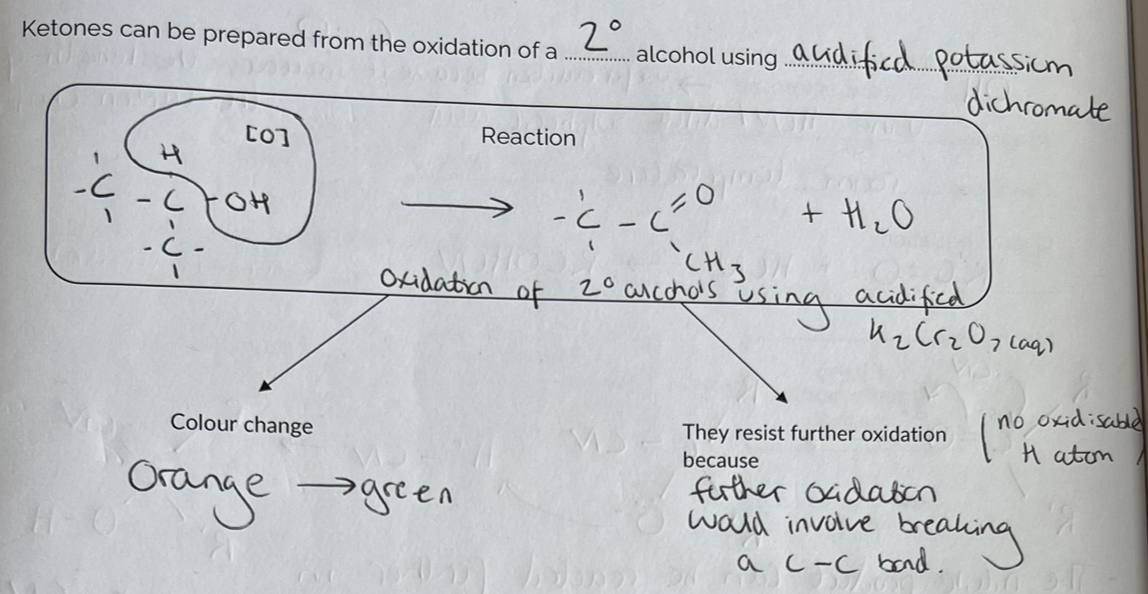 Ketones can be prepared from the oxidation of a 2° alcohol using acidified potassium
dichromate
[O]
Reaction
H
-C - C - OH
-C-
-C - C =O + H₂O
CH₃
Oxidation of 2° alcohols using acidified
K₂Cr₂O₇ (aq)
Colour change
Orange → green
They resist further oxidation
because
(no oxidisable
H atom)
further oxidation
would involve breaking
a C-C bond.